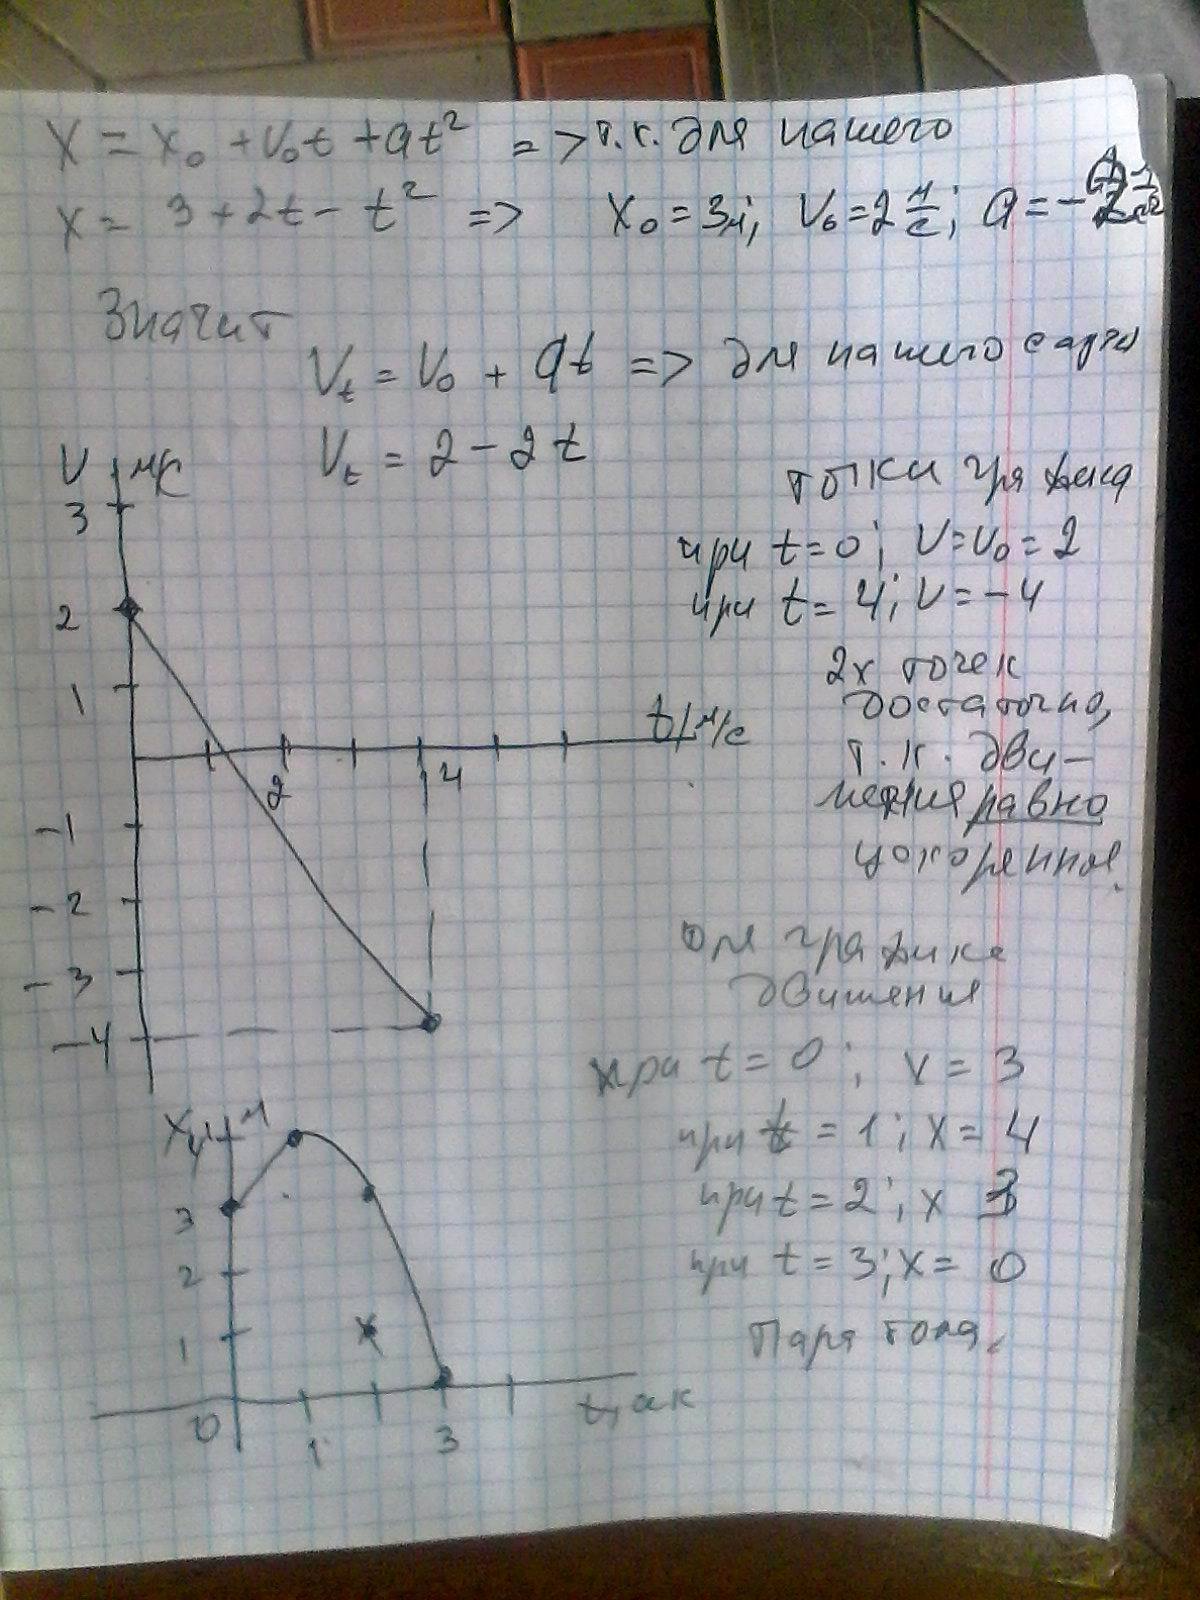 X = X₀ + V₀t + at² => т.к. для нашего
X = 3 + 2t - t² => X₀ = 3м; V₀ = 2 м/с; a = -
Значит
Vt = V₀ + at => для нашего
Vt = 2 - 2t
V м/с
3
2
1
-1
-2
-3
-4
2
4
t, м/с
при t = 0; V = V₀ = 2
при t = 4; V = -4
2х точек
достаточно,
т.к. дви-
равно
ускоренное.
для графика
движения
при t = 0; x = 3
при t = 1; x = 4
при t = 2; x 3
при t = 3; x = 0
X, м
4
3
2
1
0
1
3
t,